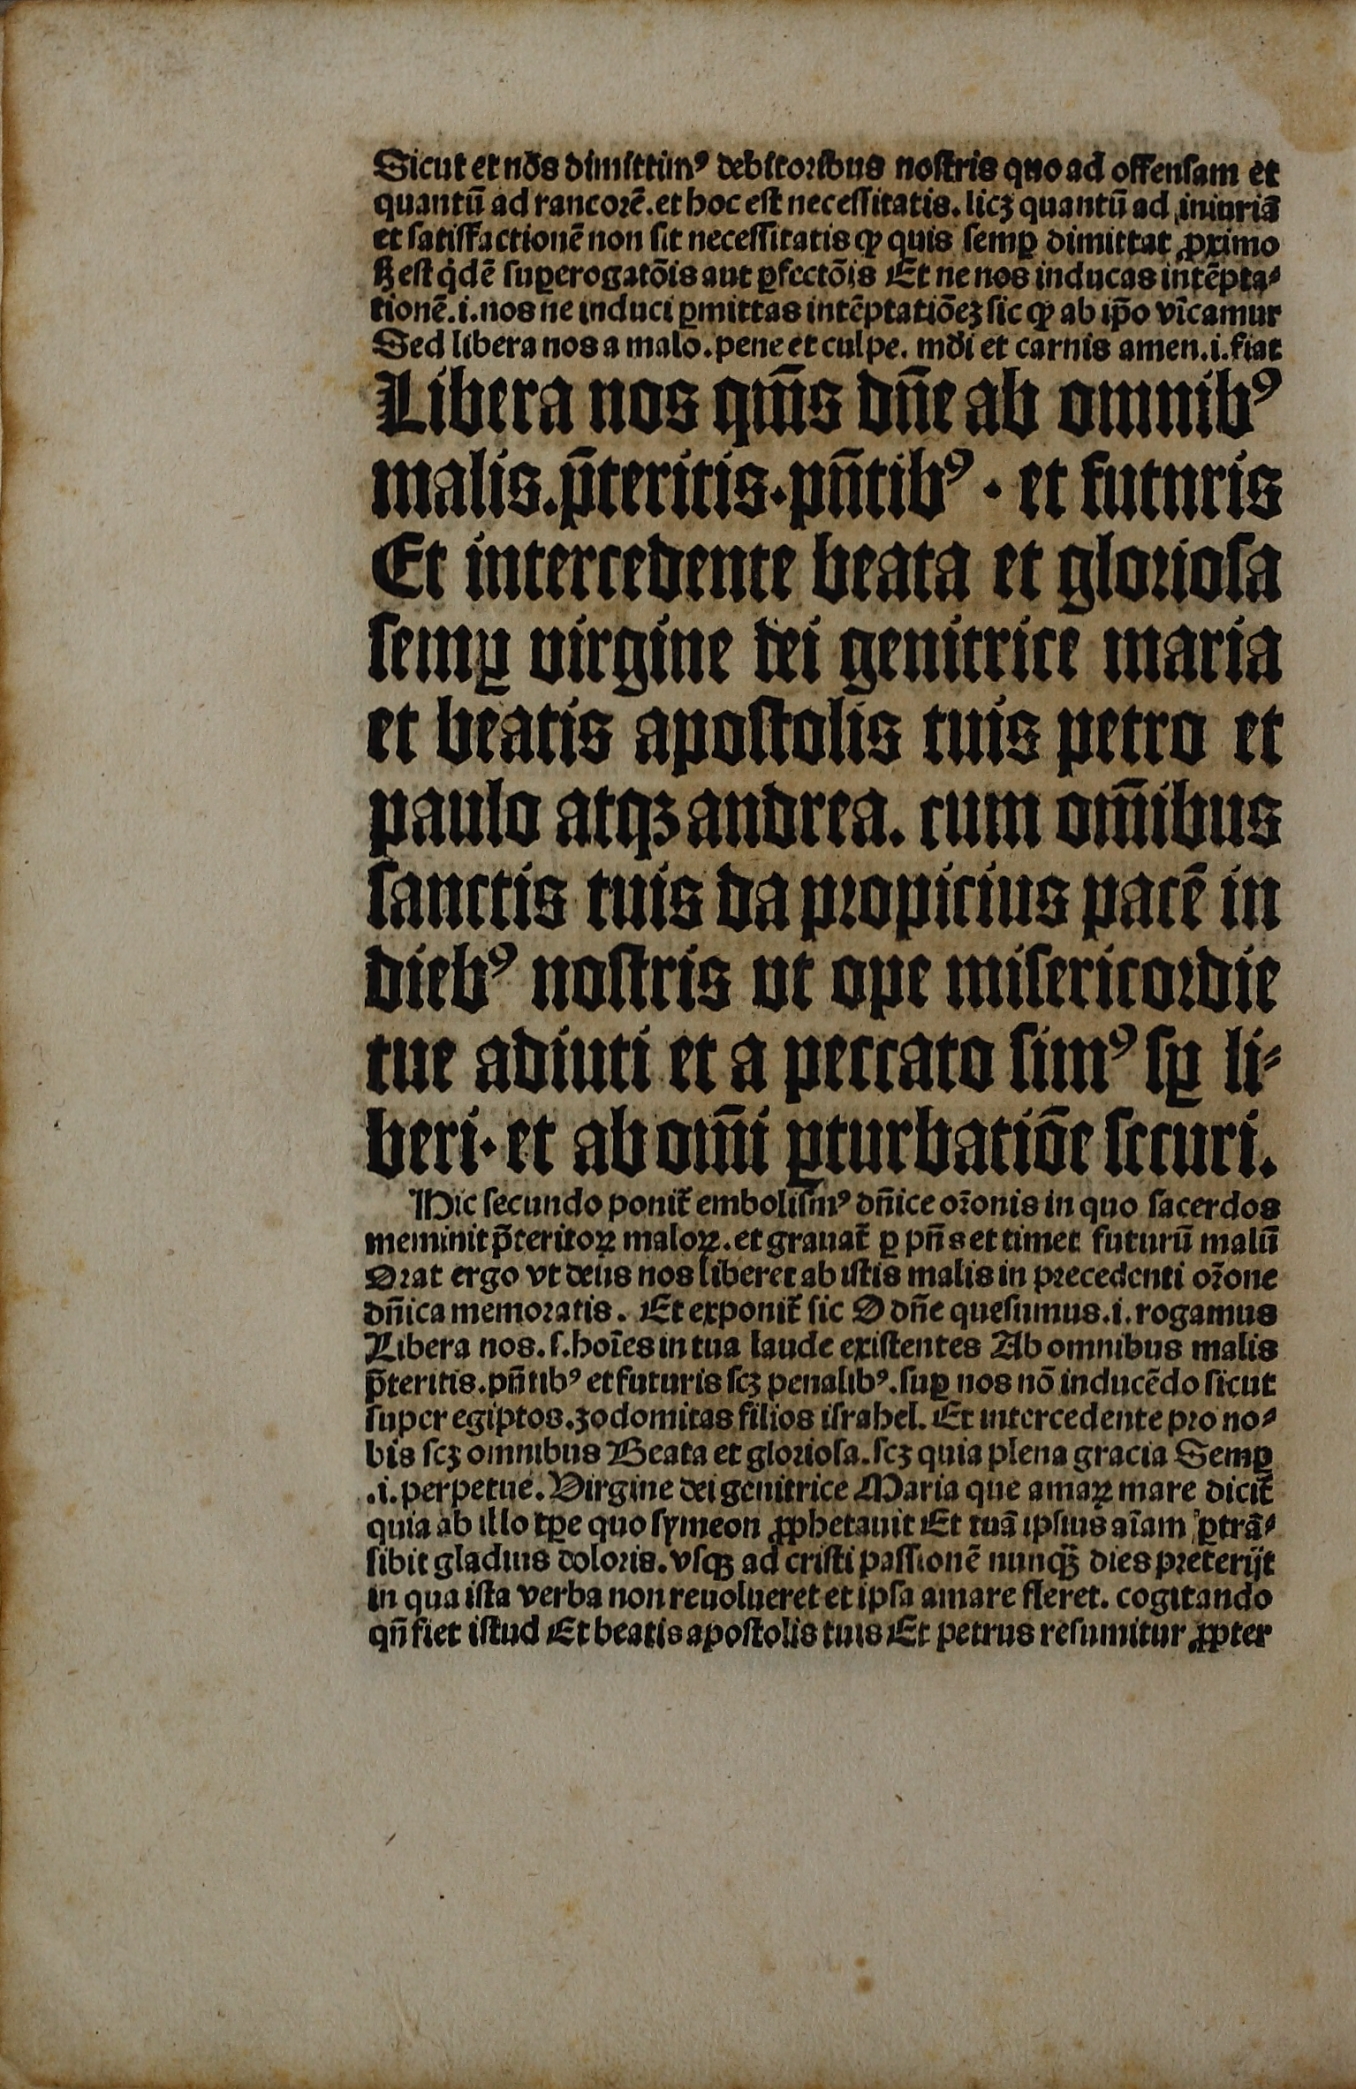 Sicut et nos dimittimꝰ debitoribus nostris quo ad offensam et
quantū ad rancorē. et hoc est necessitatis. licꝫ quantū ad iniuriā
et satisfactionē non sit necessitatis ꝙ quis semꝑ dimittat ꝓximo
sꝫ est q̇dē suꝑerogatōis aut ꝑfectōis Et ne nos inducas intēpta⸗
tionē. i. nos ne induci ꝑmittas intēptatiōeꝫ sic ꝙ ab ip̄o vīcamur
Sed libera nos a malo. pene et culpe. mūdi et carnis amen. i. fiat
Libera nos qm̄s dn̄e ab omnibꝰ
malis. p̄teritis. pn̄tibꝰ . et futuris
Et intercedente beata et gloriosa
semꝑ virgine dei genitrice maria
et beatis apostolis tuis petro et
paulo atqꝫ andrea. cum om̄ibus
sanctis tuis da propicius pacē in
diebꝰ nostris ut ope misericordie
tue adiuti et a peccato simꝰ sꝑ li⸗
beri. et ab om̄i ꝑturbatiōe securi.
Hic secundo ponit̄ embolismꝰ dn̄ice or̄onis in quo sacerdos
meminit p̄teritoꝝ maloꝝ. et grauat̄ ꝑ pn̄s et timet futurū malū
Orat ergo vt deus nos liberet ab istis malis in precedenti or̄one
dn̄ica memoratis. Et exponit̄ sic O dn̄e quesumus. i. rogamus
Libera nos. s. hoīes in tua laude existentes Ab omnibus malis
p̄teritis. pn̄tibꝰ et futuris scꝫ penalibꝰ. suꝑ nos nō inducēdo sicut
super egiptos. zodomitas filios israhel. Et intercedente pro no⸗
bis scꝫ omnibus Beata et gloriosa. scꝫ quia plena gracia Semꝑ
.i. perpetue. Virgine dei genitrice Maria que amaꝝ mare dicit̄
quia ab illo tꝑe quo symeon ꝓphetauit Et tuā ipsius aīam ꝑtrā⸗
sibit gladius doloris. vsqꝫ ad cristi passionē nunqꝫ̄ dies preterijt
in qua ista verba non reuolueret et ipsa amare fleret. cogitando
qn̄ fiet istud Et beatis apostolis tuis Et petrus resumitur ꝓpter